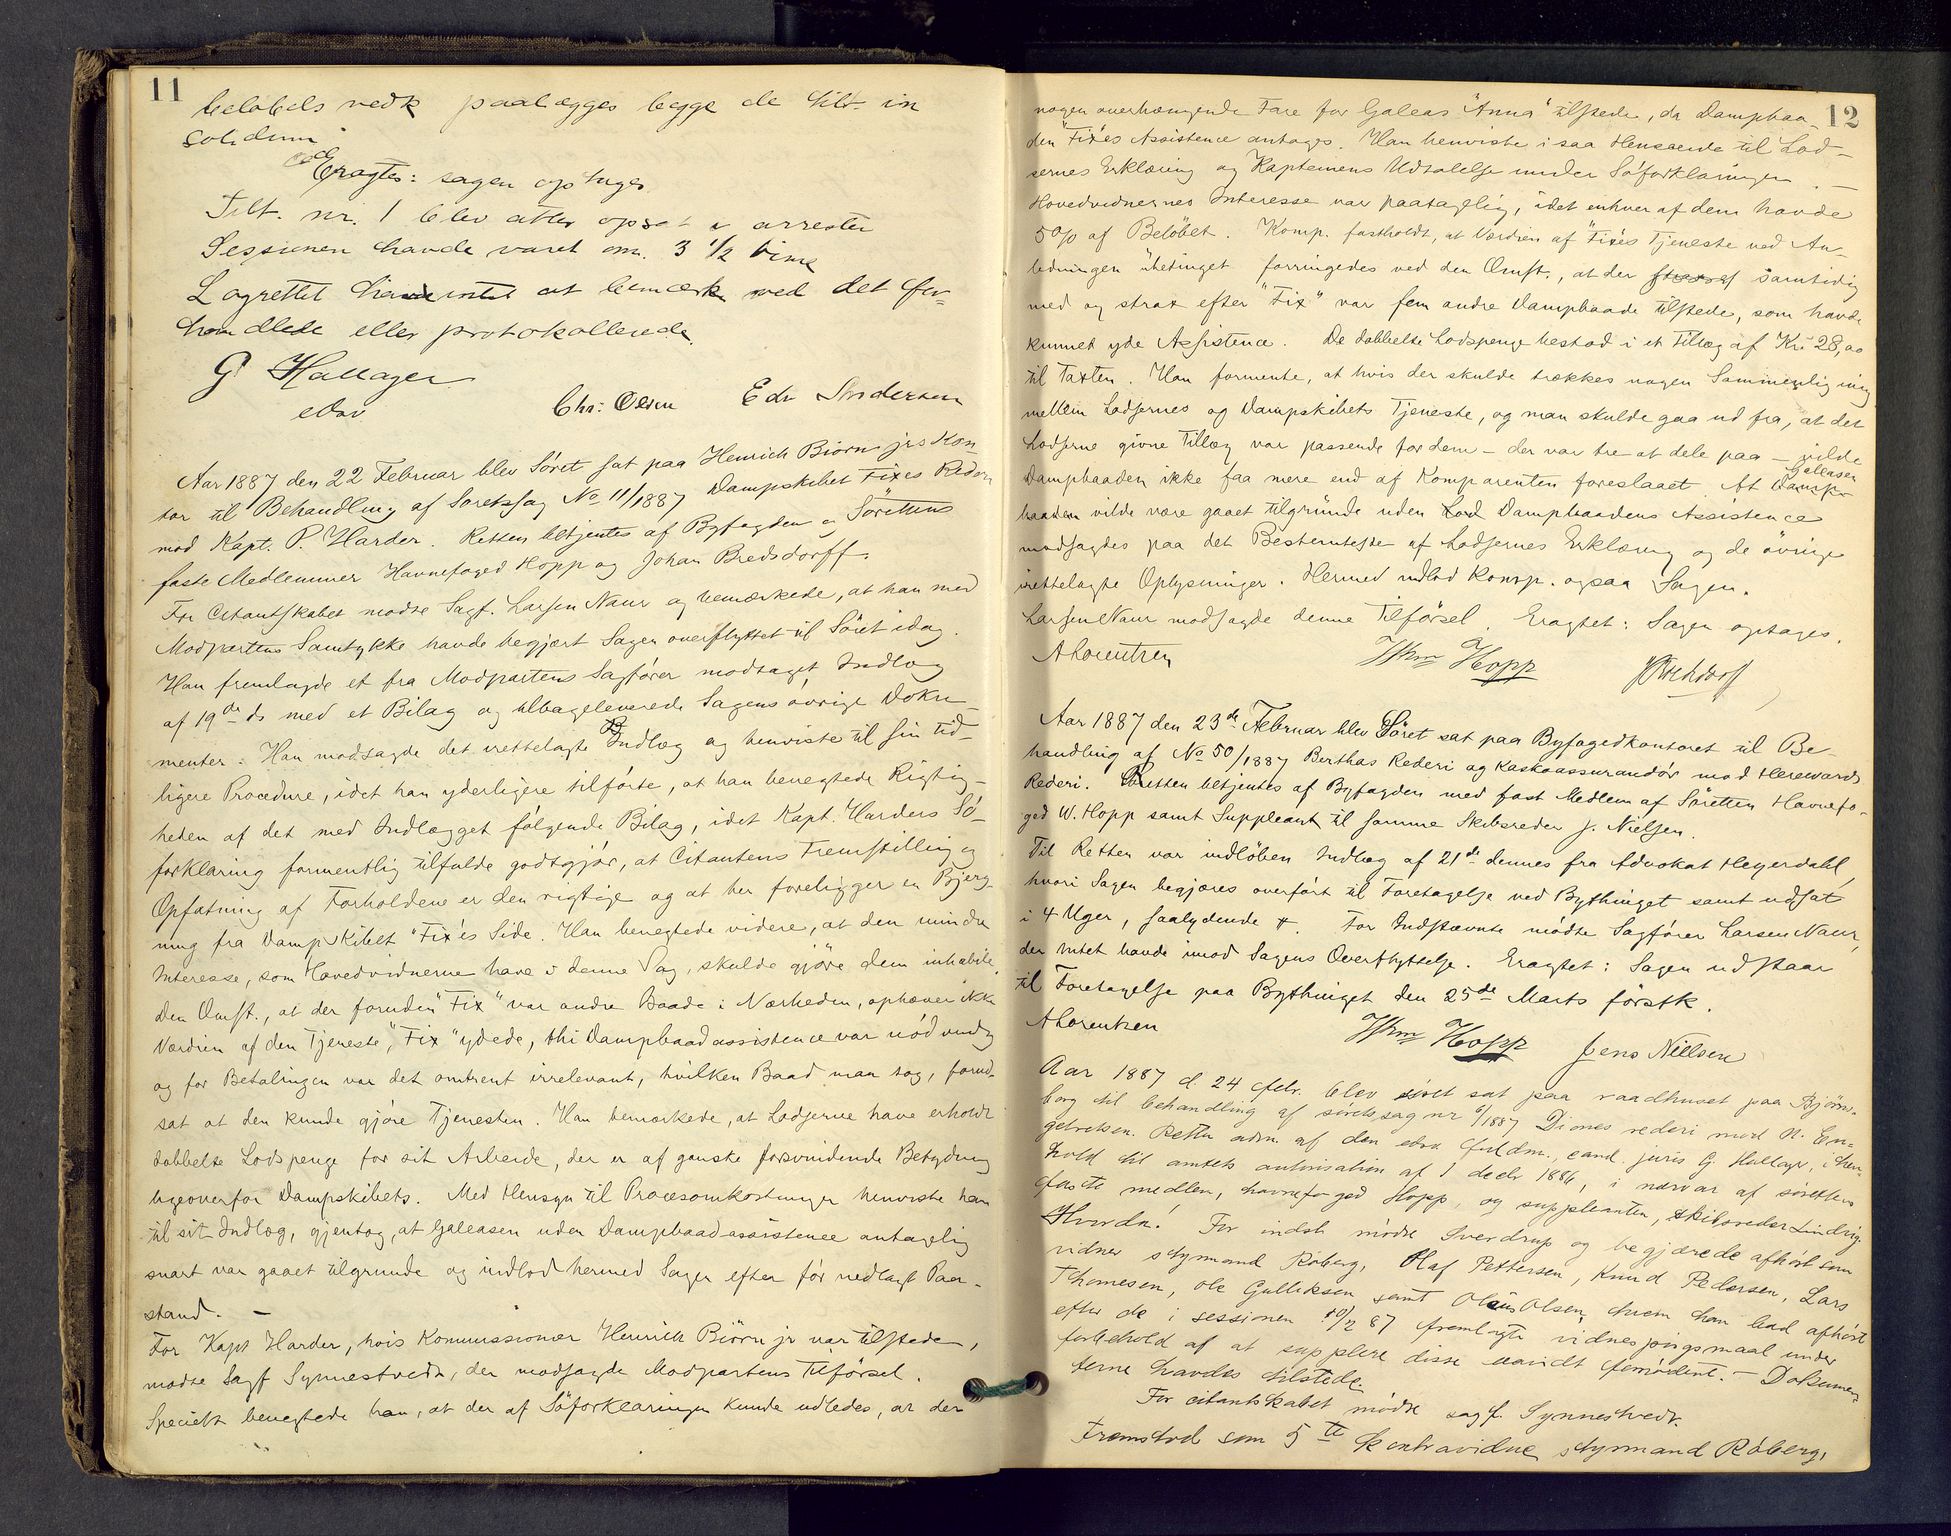 11
beløbets vedk paalægges begge de tilt. in
solidum
Eragtes: sagen optages.
Tilt. nr. 1 blev atter opsat i arresten
Sessionen havde varet om. 3 1/2 time
Lagrettet havde intet at bemærke ved det for-
handlede eller protokollerede.
G Hallager
edsv
Chr: Olsen Edv Andersen
Aar 1887 den 22 Februar blev Söret sat paa Henrich Biörn jrs Kon
tor til Behandling af Soretssag No 11/1887 Dampskibet Fixes Rederi
mod Kapt. P. Harder. Retten betjentes af Byfogden og Sörettens
faste Medlemmer Havnefoged Hopp og Johan Bredsdorff.
For Citantskabet mødte Sagf. Larsen Naur og bemærkede, at han med
Modpartens Samtykke havde begjært Sagen overflyttet til Söret idag.
Han fremlagde et fra Modpartens Sagfører modtaget Indlæg
af 19de ds med et Bilag og tilbageleverede Sagens övrige Doku-
menter. Han modsagde det rettelagte Indlæg og henviste til sin tid-
ligere Procedure, idet han yderligere tilförte, at han benegtede Rigtig-
heden af det med Indlægget fölgende Bilag, idet Kapt. Harders Sö-
forklaring formentlig tilfulde godtgjör, at Citantens Fremstilling og
Opfatning af Forholdene er den rigtige og at her foreligger en Bjerg-
ning fra Dampskibet "Fix"es Side. Han benegtede videre, at den mindre
Interesse, som Hovedvidnerne have i denne Sag, skulde gjöre dem inhabile.
Den Omst., at der foruden "Fix" var andre Baade i Nærheden, ophæver ikke
Værdien af den Tjeneste, "Fix" ydede, thi Dampbaadassistence var nödvendig
og for Betalingen var det omtrent irrelevant, hvilken Baad man tog, forud-
sat at den kunde gjöre Tjenesten. Han bemærkede, at Lodserne have erholdt
dobbelte Lodspenge for sit Arbeide, der er af ganske forsvindende Betydning
ligeoverfor Dampskibets. Med Hensyn til Procesomkostninger henviste han
til sit Indlæg, gjentog, at Galeasen uden Dampbaadassistence antagelig
snart var gaaet tilgrunde og indlod hermed Sagen efter för nedlagt Paa-
stand. —
For Kapt Harder, hvis Kommissionær Henrich Biörn jr var tilstede,
mødte Sagf Synnestvedt, der modsagde Modpartens Tilförsel.
Specielt benegtede han, at der af Söforklaringen kunde udledes, at der
12
nogen overhængende Fare for Galeas "Anna" tilstede, da Dampbaa-
den "Fix"es Assistence antoges. Han henviste i saa Henseende til Lod-
sernes Erklæring og Kapteinens Udtalelse under Söforklaringen. —
Hovedvidnernes Interesse var paatagelig, idet enhver af dem havde
5% af Belöbet. Komp. fastholdt, at Værdien af "Fix"es Tjeneste ved An-
ledningen ubetinget forringedes ved den Omst., at der samtidig
med og strax efter "Fix" var fem andre Dampbaade tilstede, som havde
kunnet yde Assistence. De dobbelte Lodspenge bestod i et Tillæg af Kr 28,00
til Taxten. Han formente, at hvis der skulde trækkes nogen Sammenligning
mellem Lodsernes og Dampskibets Tjeneste, og man skulde gaa ud fra, at det
Lodserne givne Tillæg var passende for dem – der var tre at dele paa – vilde
Dampbaaden ikke faa mere end af Komparenten foreslaaet At Galeasen
vilde være gaaet tilgrunde uden Dampbaadens Assistence
modsagdes paa det Bestemteste af Lodsernes Erklæring og de övrige
rettelagte Oplysninger. Hermed indlod Komp. ogsaa Sagen.
Larsen Naur modsagde denne Tilförsel. Eragtet: Sagen optages.
A Lorentzen Wm Hopp J Bredsdorff
Aar 1887 den 23de Februar blev Söret sat paa Byfogedkontoret til Be-
handling af No 50/1887 Berthas Rederi og Kaskoassurandör mod Herewards
Rederi. Retten betjentes af Byfogden med fast Medlem af Söretten Havnefo-
ged W. Hopp samt Suppleant til samme Skibsreder J. Nielsen.
Til Retten var indlöben Indlæg af 21de dennes fra Advokat Heyerdahl,
hvori Sagen begjæres overfört til Foretagelse ved Bythinget samt udsat
i 4 Uger, saalydende #. For Indstævnte mödte Sagförer Larsen Naur,
der intet havde imod Sagens Overflyttelse. Eragtet: Sagen udstaar
til Foretagelse paa Bythinget den 25de Marts förstk.
A Lorentzen Wm Hopp Jens Nielsen
Aar 1887 d. 24 febr. blev söret sat paa raadhuset paa Björns-
borg til behandling af søretssag nr 6/1887 Diones rederi mod N. En-
gelretsen. Retten adm. af den edsv fuldm., cand. juris G. Hallager, i hen-
hold til amtets autorisation af 1 decbr 1886, i nærvær af sørettens
faste medlem, havnefoged Hopp, og suppleanten, skibsreder Lindvig
Hvorda! For indst. mödte Sverdrup og begjærede afhørt som
vidner styrmand Röberg, Olaf Pettersen, Knud Pedersen, Lars
Thomesen, Ole Gulliksen samt Olaus Olsen, hvem han bad afhørt
efter de i sessionen 10/2 87 fremlagte vidnespörgsmaal under
forbehold af at supplere disse vaividt fornödent. – Dokumen-
terne havdes tilstede.
For citantskabet mödte sagf. Synnestvedt.
Fremstod som 5te kontravidne styrmand Röberg,